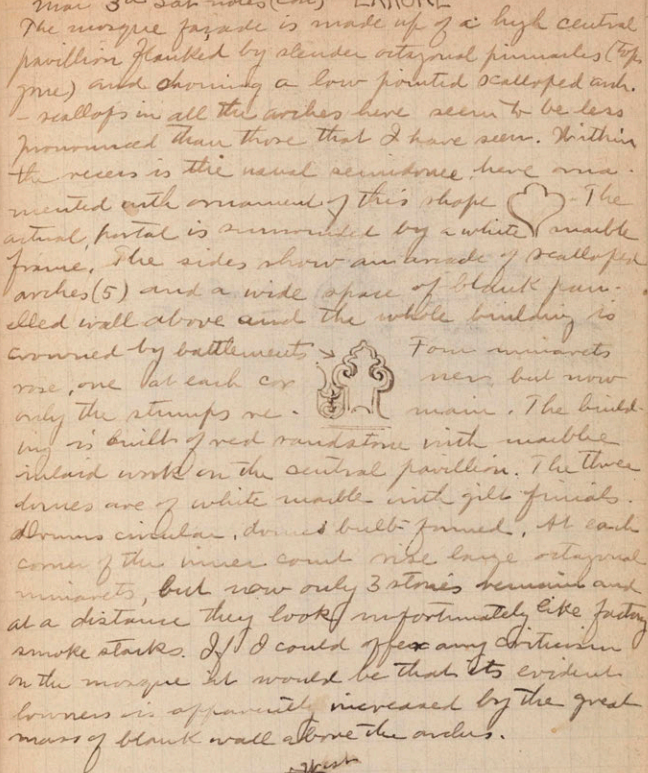 Mar 3rd Sat. notes (con) LAHORE
The mosque façade is made up of a high central
pavillion flanked by slender octagonal pinnacles (tops
gone) and showing a low pointed scalloped arch.
- scallops in all the arches here seem to be less
pronounced than those that I have seen. Within
the recess is the usual semidome, here orna-
mented with ornament of this shape - The
actual portal is surrounded by a white marble
frame. The sides show an arcade of scalloped
arches (5) and a wide space of blank pan-
elled wall above and the whole building is
crowned by battlements Four minarets
rose, one at each cor ner but now
only the stumps re- main. The build-
ing is built of red sandstone with marble
inlaid work on the central pavillion. The three
domes are of white marble with gilt finials.
Drums circular, domes bulb formed. At each
corner of the inner court rise large octagonal
minarets, but now only 3 stories remain and
at a distance they look unfortunately like factory
smoke stacks. If I could offer any criticism
on the mosque it would be that its evident
lowness is apparently increased by the great
mass of blank wall above the arches.